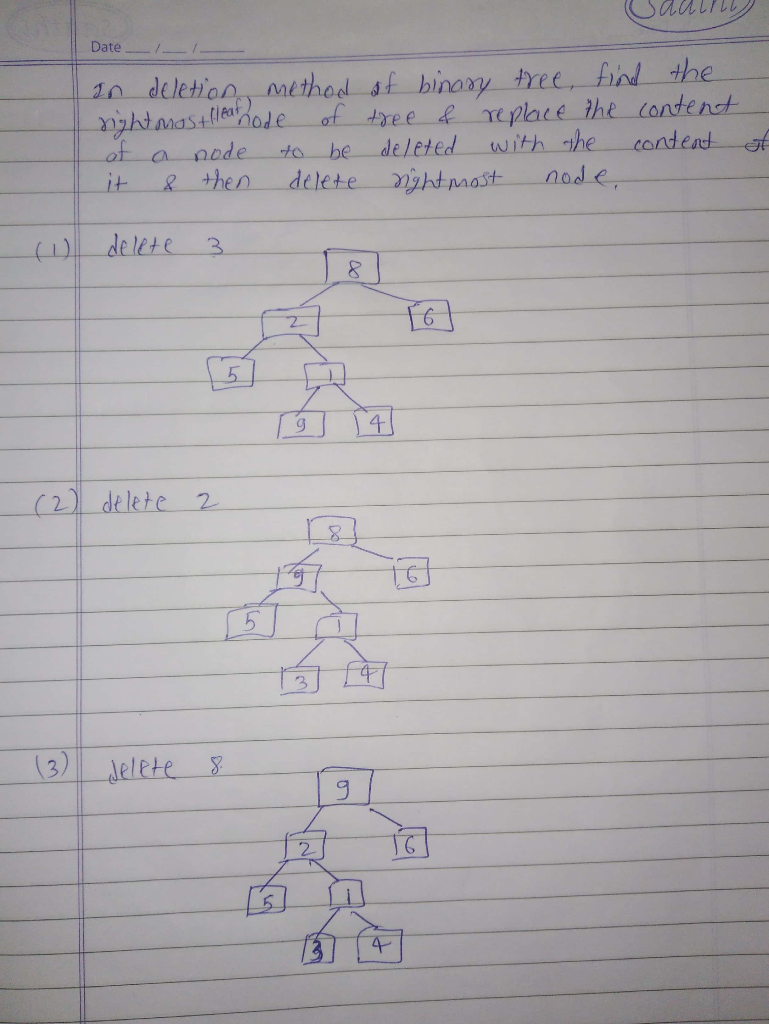 Saathi
Date __/__/____
In deletion method of binary tree, find the
rightmost(leaf)node of tree & replace the content
of a node to be deleted with the content of
it & then delete rightmost node.
(1) delete 3
8
2 6
5 1
9 4
(2) delete 2
8
9 6
5 1
3 4
(3) delete 8
9
2 6
5 1
3 4